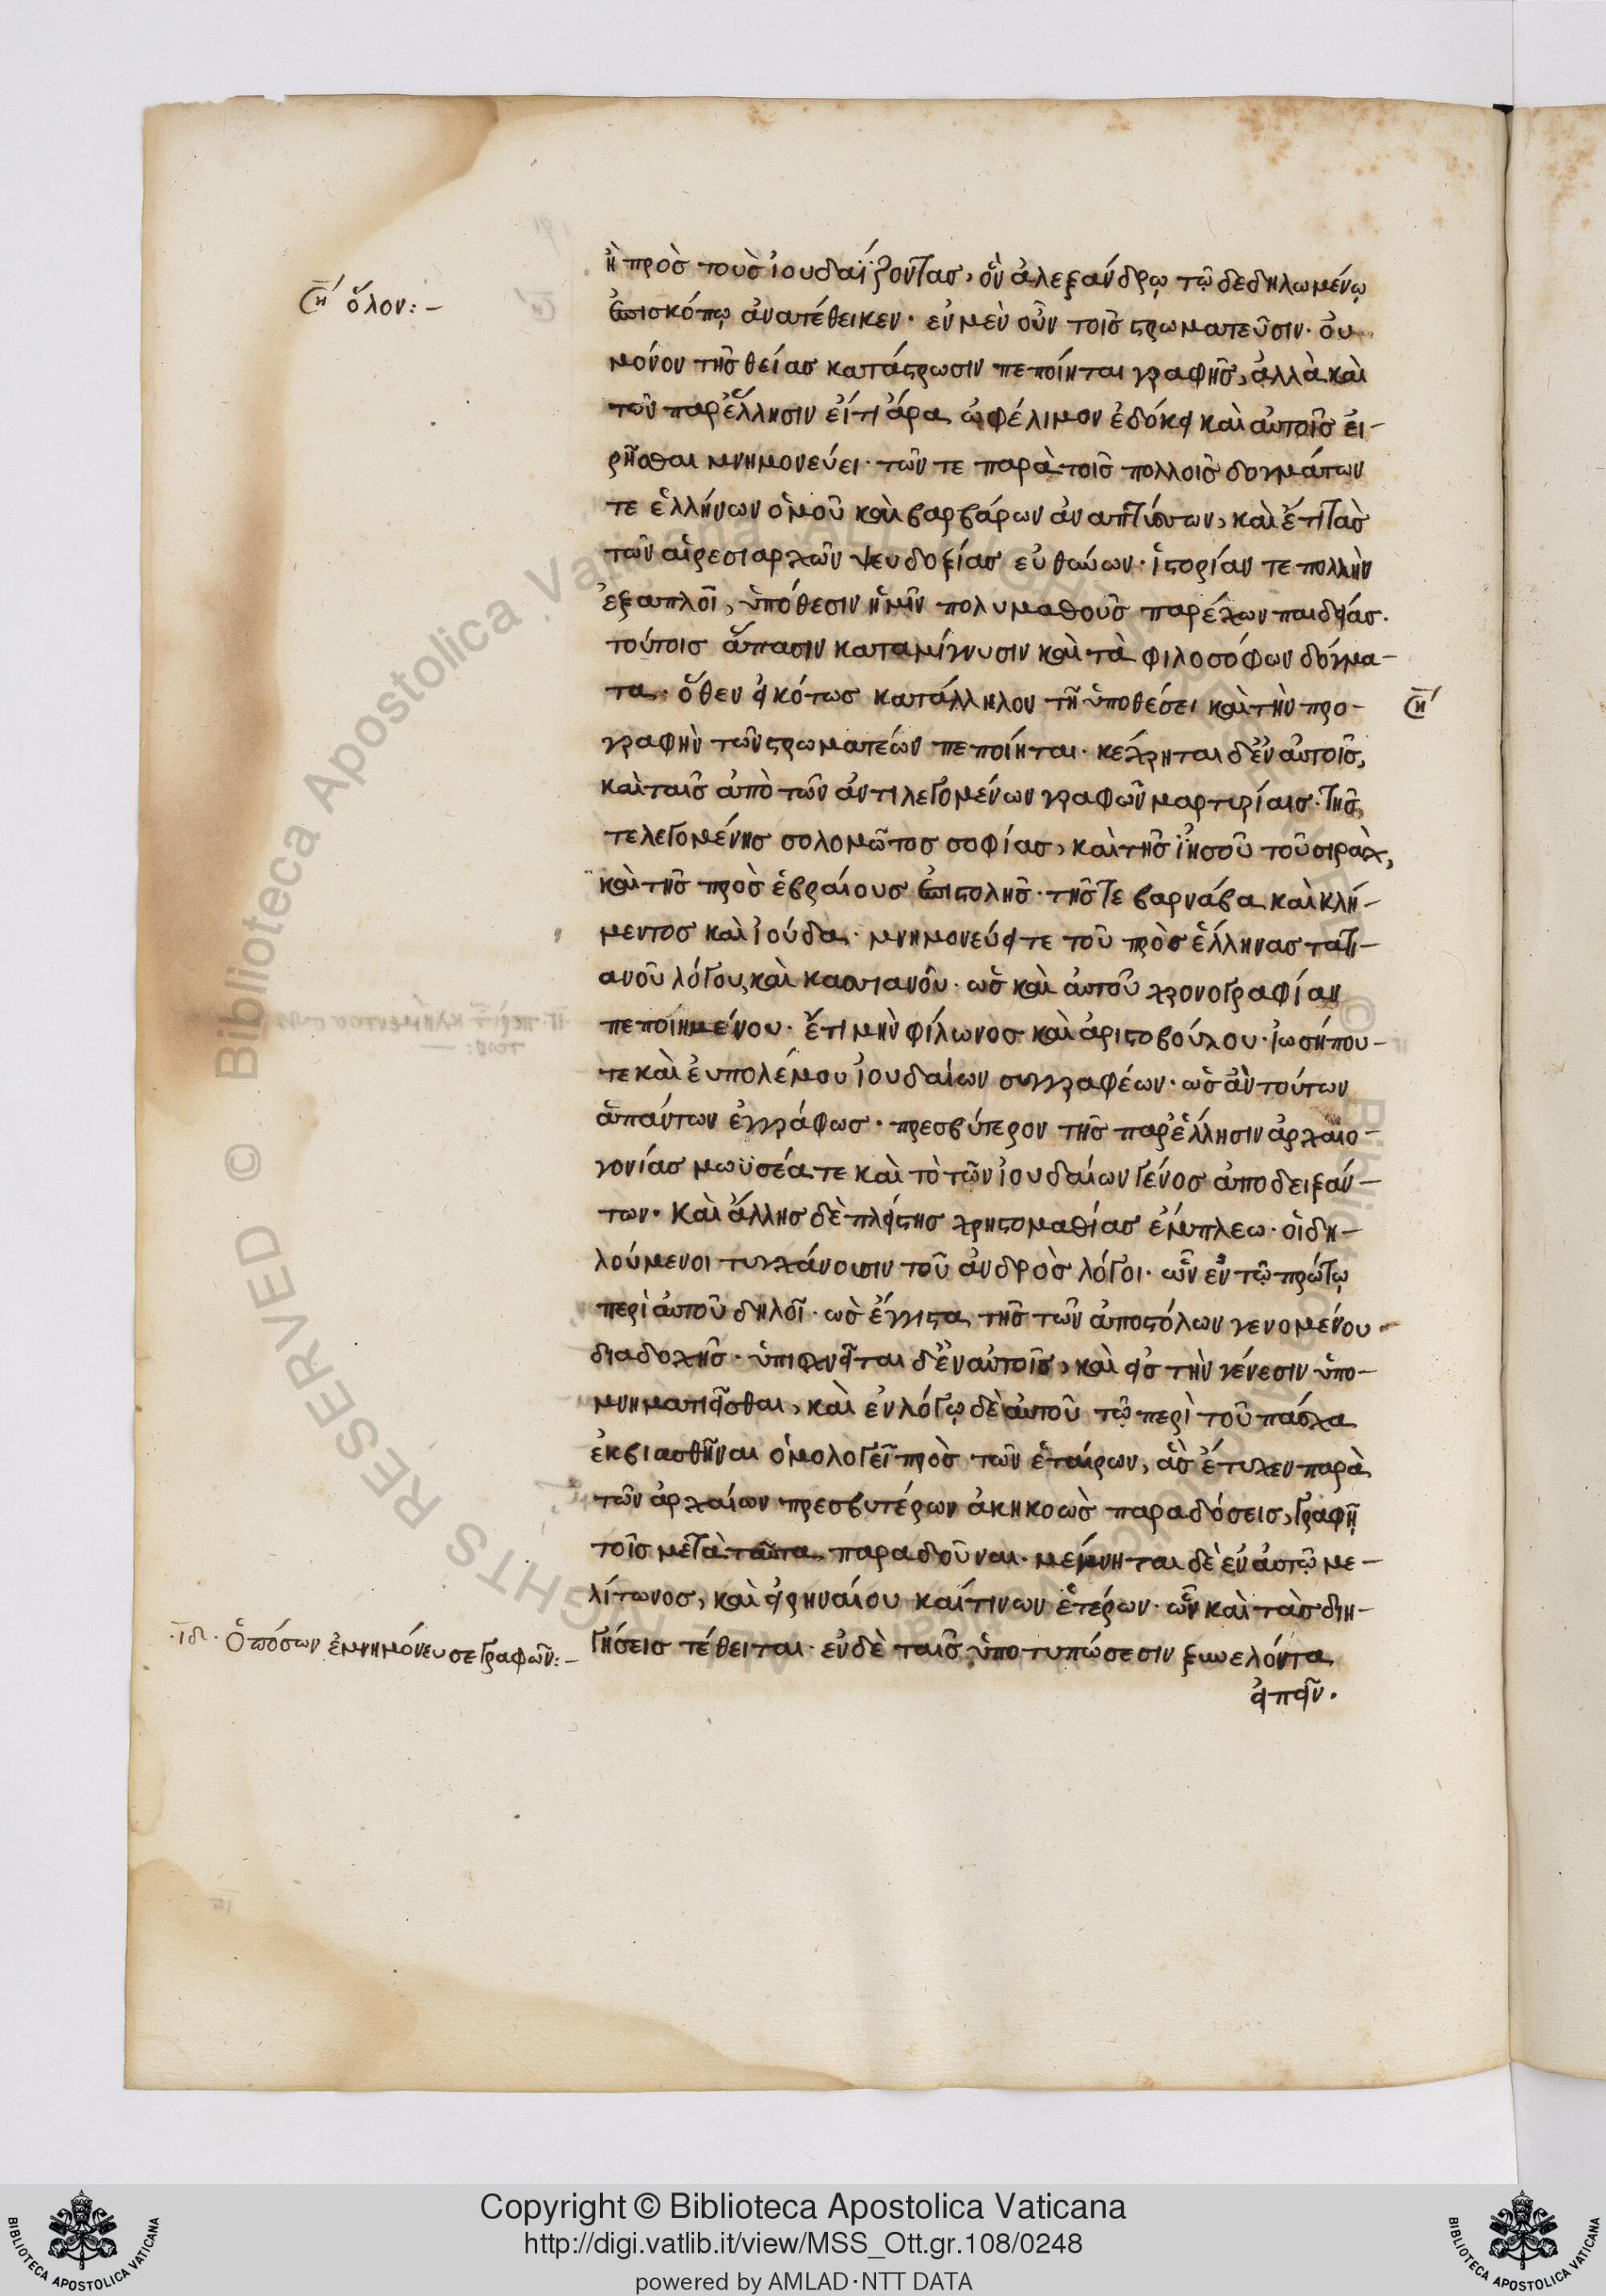 ἢ πρὸς τοὺς ἰουδαΐζοντας, ὃν ἀλεξάνδρῳ τῷ δεδηλωμένῳ
ὅλον:-
ἐπισκόπῳ ἀνατέθεικεν. ἐν μὲν οὖν τοῖς στρωματεῦσιν. οὐ
μόνον τῆς θείας κατάστρωσιν πεποίηται γραφῆς, ἀλλὰ καὶ
τῶν παρ' ἕλλησιν εἴ τι ἄρα ὠφέλιμον ἐδόκει καὶ αὐτοῖς εἰ-
ρῆσθαι μνημονεύει. τῶν τε παρὰ τοῖς πολλοῖς δογμάτων
τε ἑλλήνων ὁμοῦ καὶ βαρβάρων ἀναπτύσσων, καὶ ἔτι τὰς
τῶν αἱρεσιαρχῶν ψευδοξίας εὐθύνων. ἱστορίαν τε πολλὴν
ἐξαπλοῖ, ὑπόθεσιν ἡμῖν πολυμαθοῦς παρέχων παιδείας.
τούτοις ἅπασιν καταμίγνυσιν καὶ τὰ φιλοσόφων δόγμα-
τα. ὅθεν εἰκότως κατάλληλον τῇ ὑποθέσει καὶ τὴν προ-
γραφὴν τῶν στρωματέων πεποίηται. κέχρηται δ' ἐν αὐτοῖς,
καὶ ταῖς ἀπὸ τῶν ἀντιλεγομένων γραφῶν μαρτυρίαις. τῆς
τε λεγομένης σολομῶντος σοφίας, καὶ τῆς ἰησοῦ τοῦ σιραχ,
καὶ τῆς πρὸς ἑβραίους ἐπιστολῆς. τῆς τε βαρνάβα καὶ κλή-
μεντος καὶ ἰούδα. μνημονεύει τε τοῦ πρὸς ἕλληνας τατι-
ανοῦ λόγου, καὶ κασιανοῦ. ὡς καὶ αὐτοῦ χρονογραφίαν
πεποιημένου. ἔτι μὴν φίλωνος καὶ ἀριστοβούλου. ἰωσήπου-
τε καὶ εὐπολέμου ἰουδαίων συγγραφέων. ὡς ἂν τούτων
ἁπάντων ἐγγράφως. πρεσβύτερον τῆς παρ' ἕλλησιν ἀρχαιο-
γονίας μωϋσέα τε καὶ τὸ τῶν ἰουδαίων γένος ἀποδειξάν-
των. καὶ ἄλλης δὲ πλείστης χρηστομαθίας ἔμπλεω. οἱ δη-
λούμενοι τυγχάνουσιν τοῦ ἀνδρὸς λόγοι. ὧν ἐν τῷ πρώτῳ
περὶ αὐτοῦ δηλοῖ. ὡς ἔγγιστα τῆς τῶν ἀποστόλων γενομένου
διαδοχῆς. ὑπισχνεῖται δ' ἐν αὐτοῖς, καὶ εἰς τὴν γένεσιν ὑπο-
μνηματιεῖσθαι, καὶ ἐν λόγῳ δὲ αὐτοῦ τῷ περὶ τοῦ πάσχα
ἐκβιασθῆναι ὁμολογεῖ πρὸς τῶν ἑταίρων, ἃς ἔτυχεν παρὰ
τῶν ἀρχαίων πρεσβυτέρων ἀκηκοὼς παραδόσεις, γραφῇ
τοῖς μετὰ ταῦτα παραδοῦναι. μέμνηται δὲ ἐν αὐτῷ με-
λίτωνος, καὶ εἰρηναίου καί τινων ἑτέρων. ὧν καὶ τὰς διη-
.ιδ. Ὁπόσων ἐμνημόνευσε γραφῶν:-
γήσεις τέθειται. ἐν δὲ ταῖς ὑποτυπώσεσιν ξυνελόντα
εἰπεῖν.
Biblioteca Apostolica Vaticana
ALL RIGHTS RESERVED ©
Copyright © Biblioteca Apostolica Vaticana
http://digi.vatlib.it/view/MSS_Ott.gr.108/0248
powered by AMLAD·NTT DATA
BIBLIOTECA APOSTOLICA VATICANA
BIBLIOTECA APOSTOLICA VATICANA